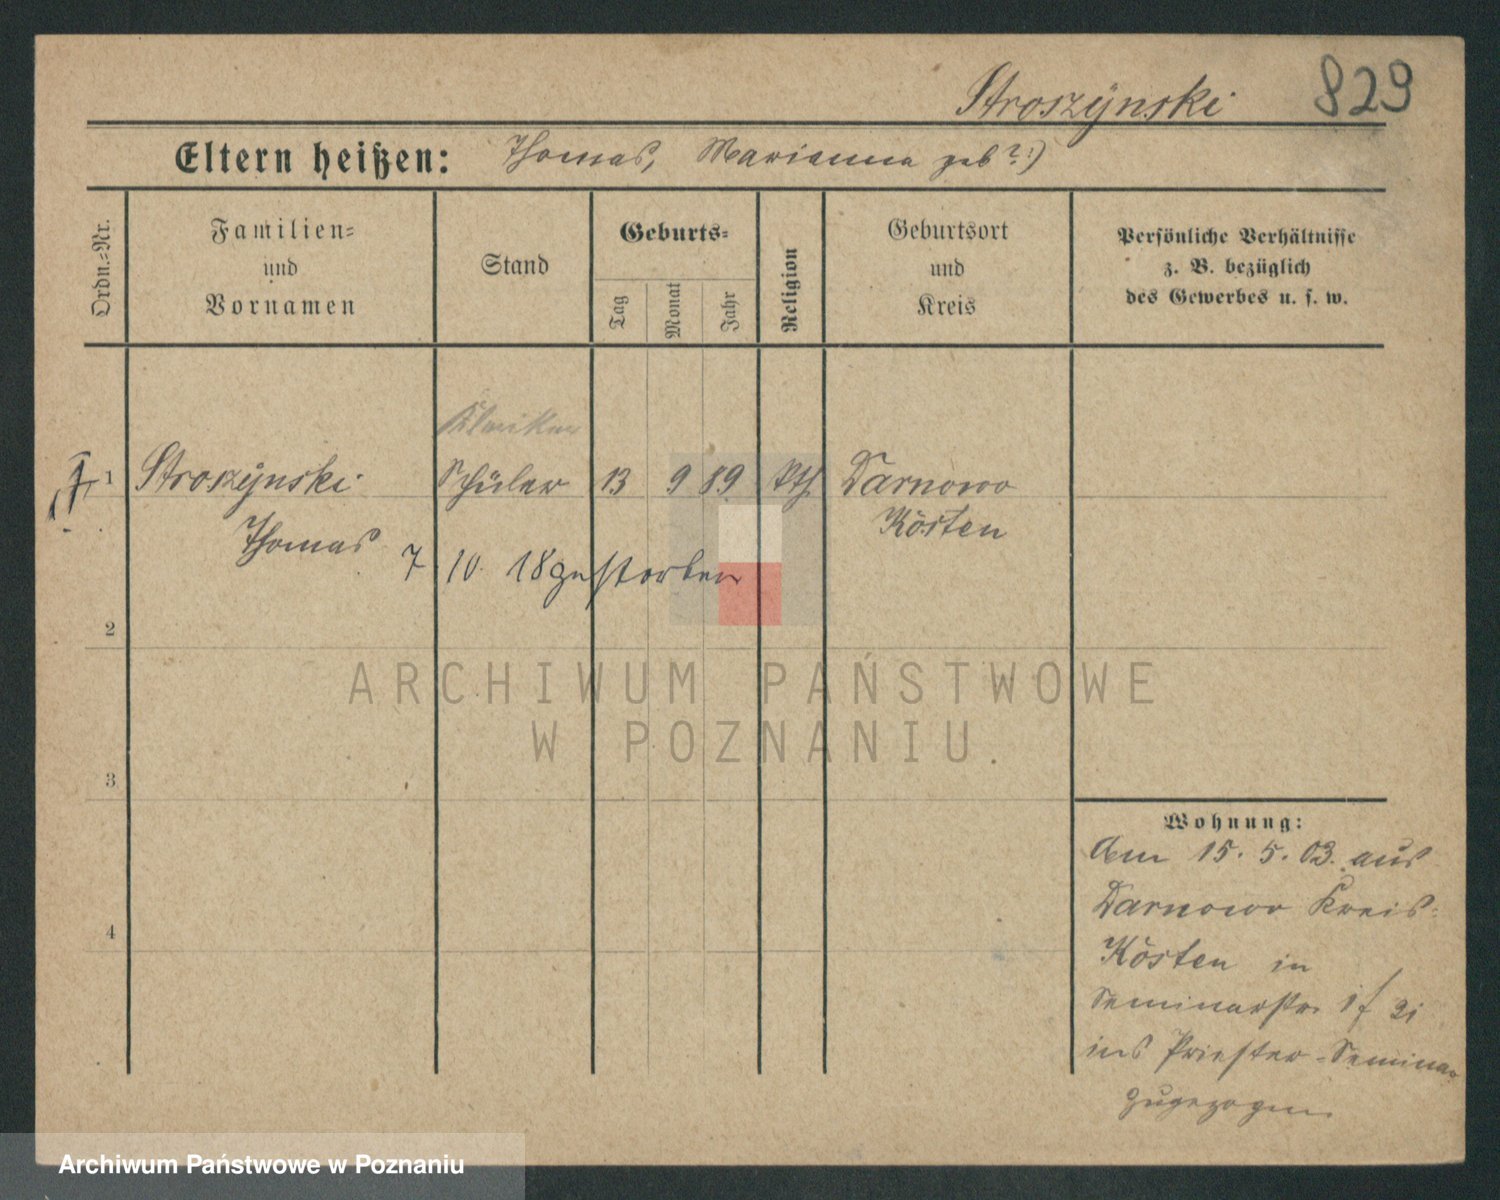 Stroszÿnski 829
Eltern heißen: Thomas, Marianna geb ?:)
Ordn.=Nr.
Familien=
und
Vornamen
Stand
Geburts=
Tag
Monat
Jahr
Religion
Geburtsort
und
Kreis
Persönliche Verhältnisse
z. B. bezüglich
des Gewerbes u. s. w.
Kleriker
1 Stroszÿnski Schüler 13 9 89 kth Darnowo
Kösten
Thomas
7 10. 18 gestorben
2
ARCHIWUM PAŃSTWOWE
W POZNANIU.
3
Wohnung:
Am 15. 5. 03. aus
Darnowo Kreis=
4
Kösten in
Seminarstr.
ins Priester=Seminar
zugezogen.
Archiwum Państwowe w Poznaniu